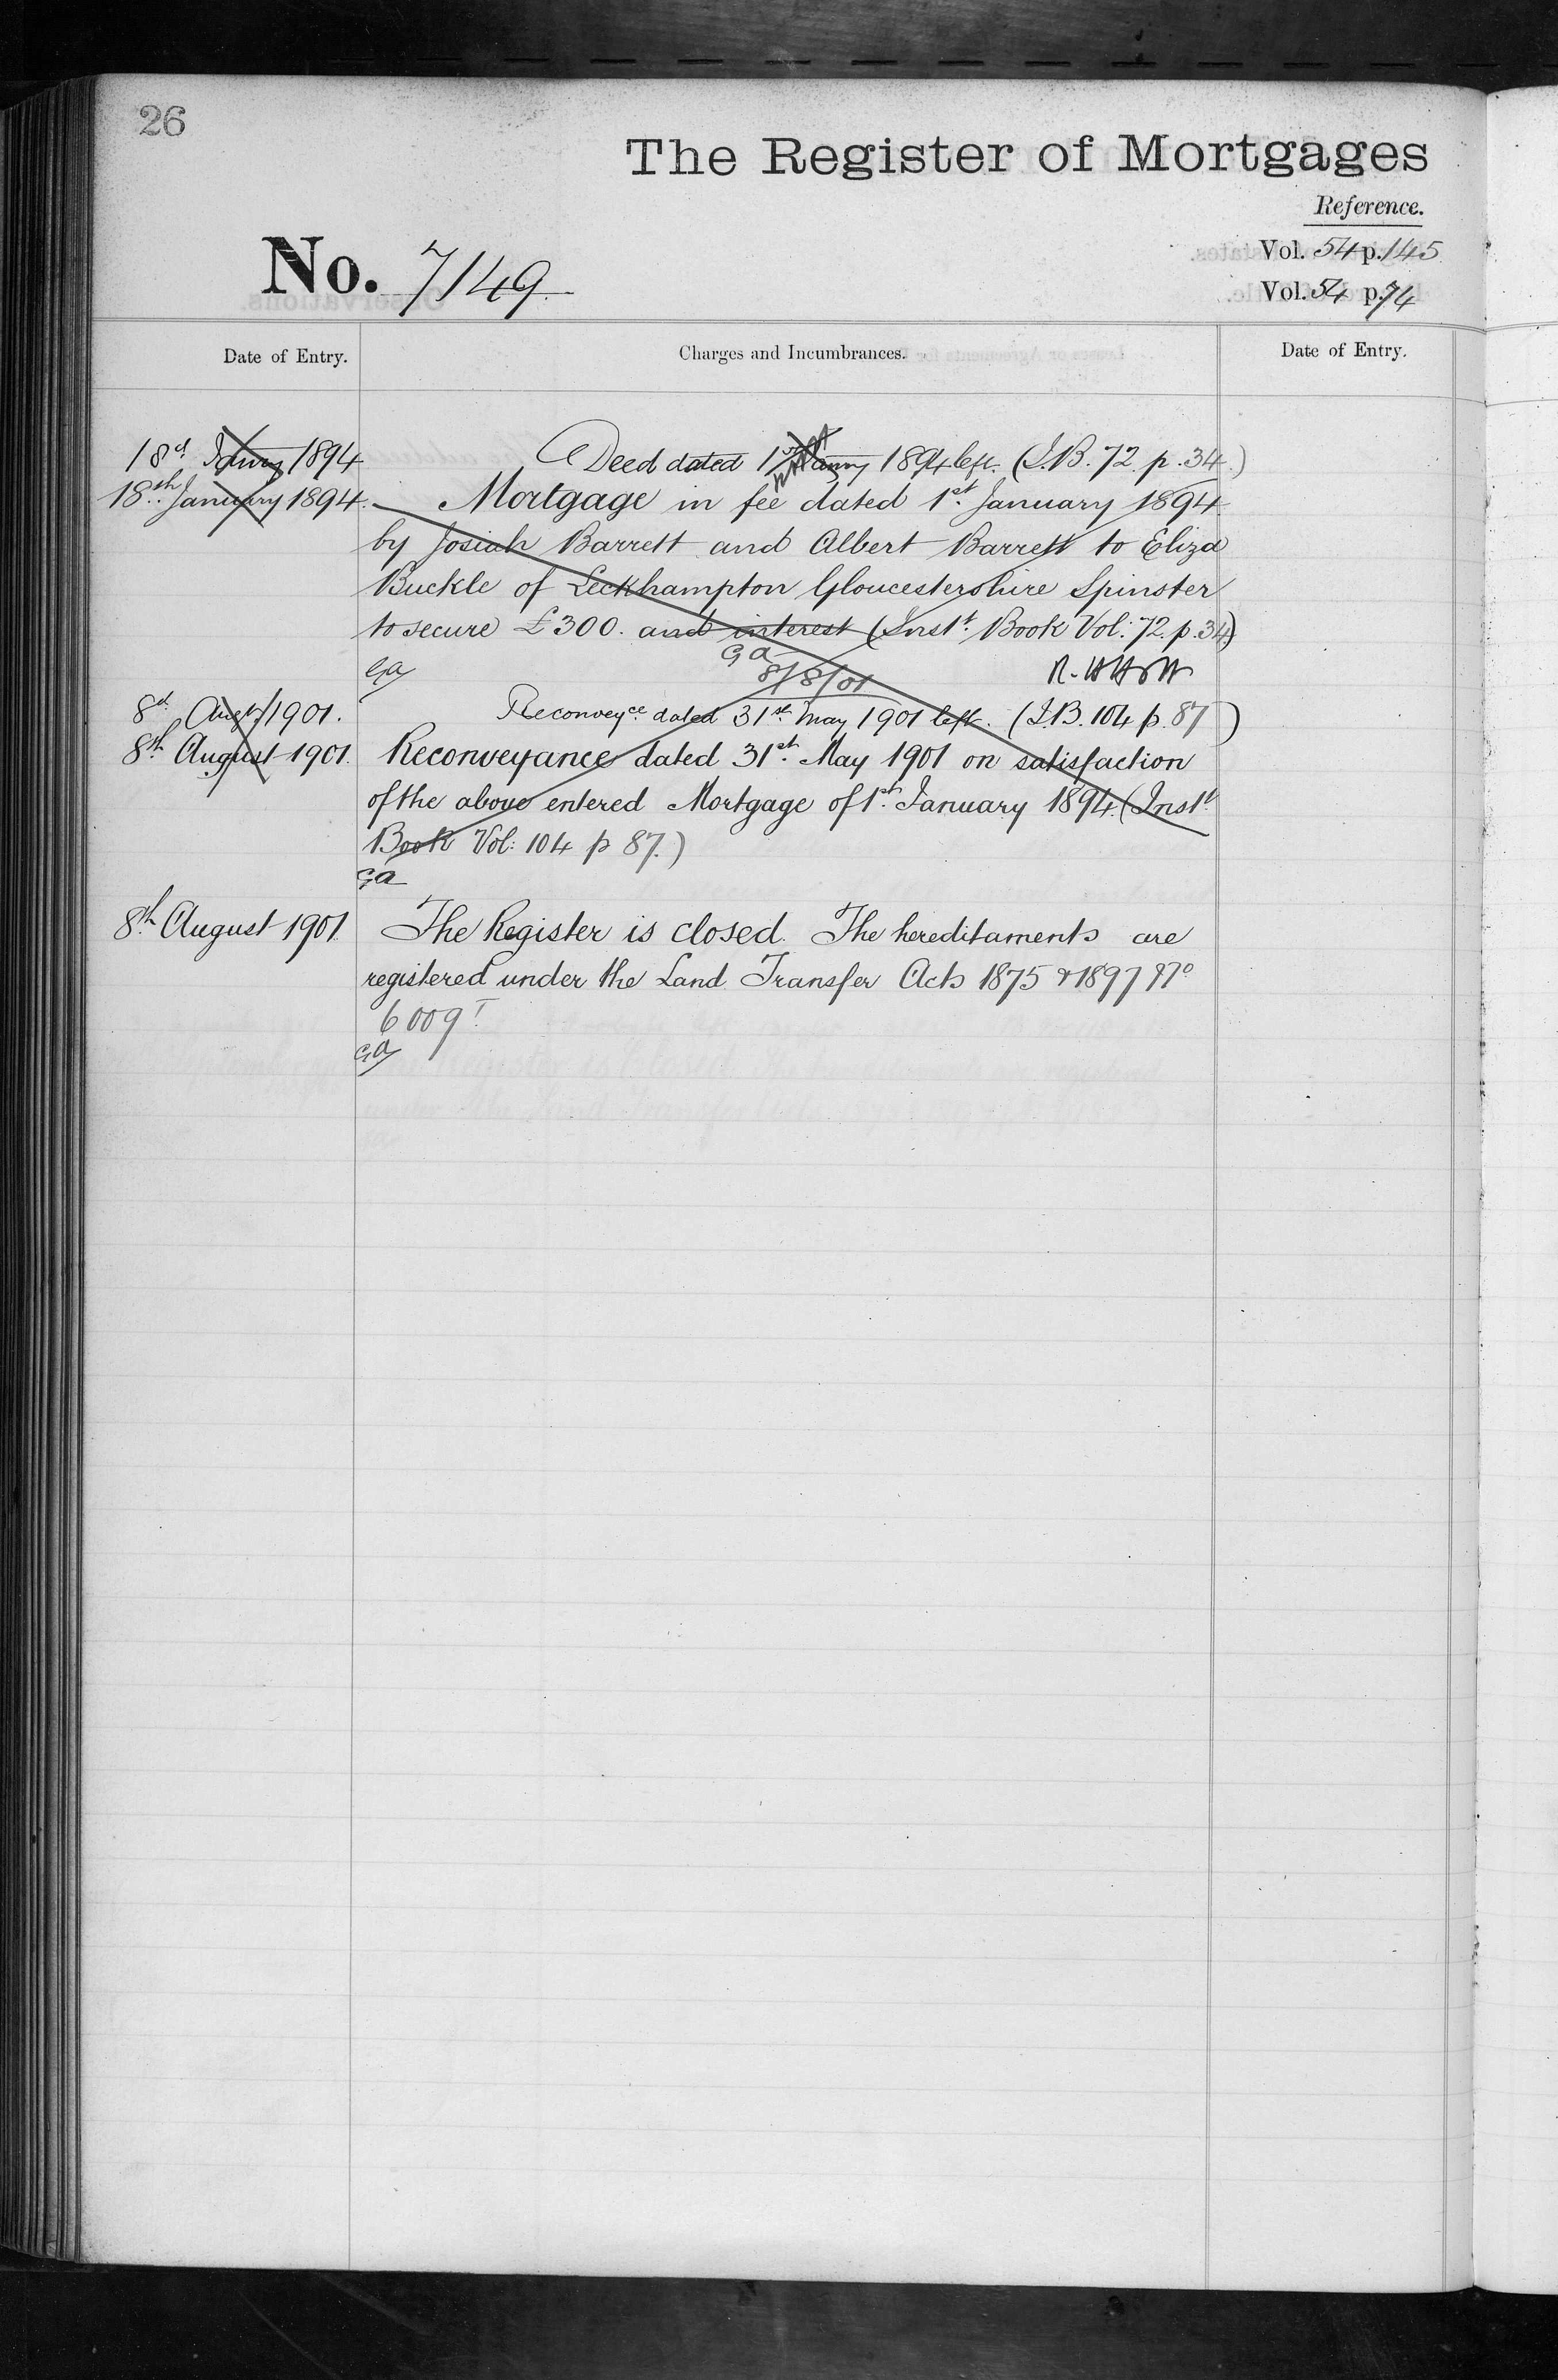 26
The Register of Mortgages
Reference.
No. 7149
Vol. 54 p. 145
Vol. 54 p. 74
Date of Entry. Charges and Incumbrances. Date of Entry.
18th 1894 Deed dated 1st 1894 left. (I.B. 72 p. 34)
18th January 1894. Mortgage in fee dated 1st January 1894
by Josiah Barrett and Albert Barrett to Eliza
Buckle of Leckhampton Gloucestershire Spinster
to secure £300. and interest (Inst. Book Vol: 72. p. 34)
GA
8/8/01
8th Augst 1901. Reconveyce dated 31st May 1901 left. (I.B. 104 p. 87)
8th August 1901. Reconveyance dated 31st May 1901 on satisfaction
of the above entered Mortgage of 1st January 1894. (Inst.
Book Vol: 104 p 87.)
GA
8th August 1901. The Register is closed. The hereditaments are
registered under the Land Transfer Acts 1875 & 1897 No
6009 I.
GA